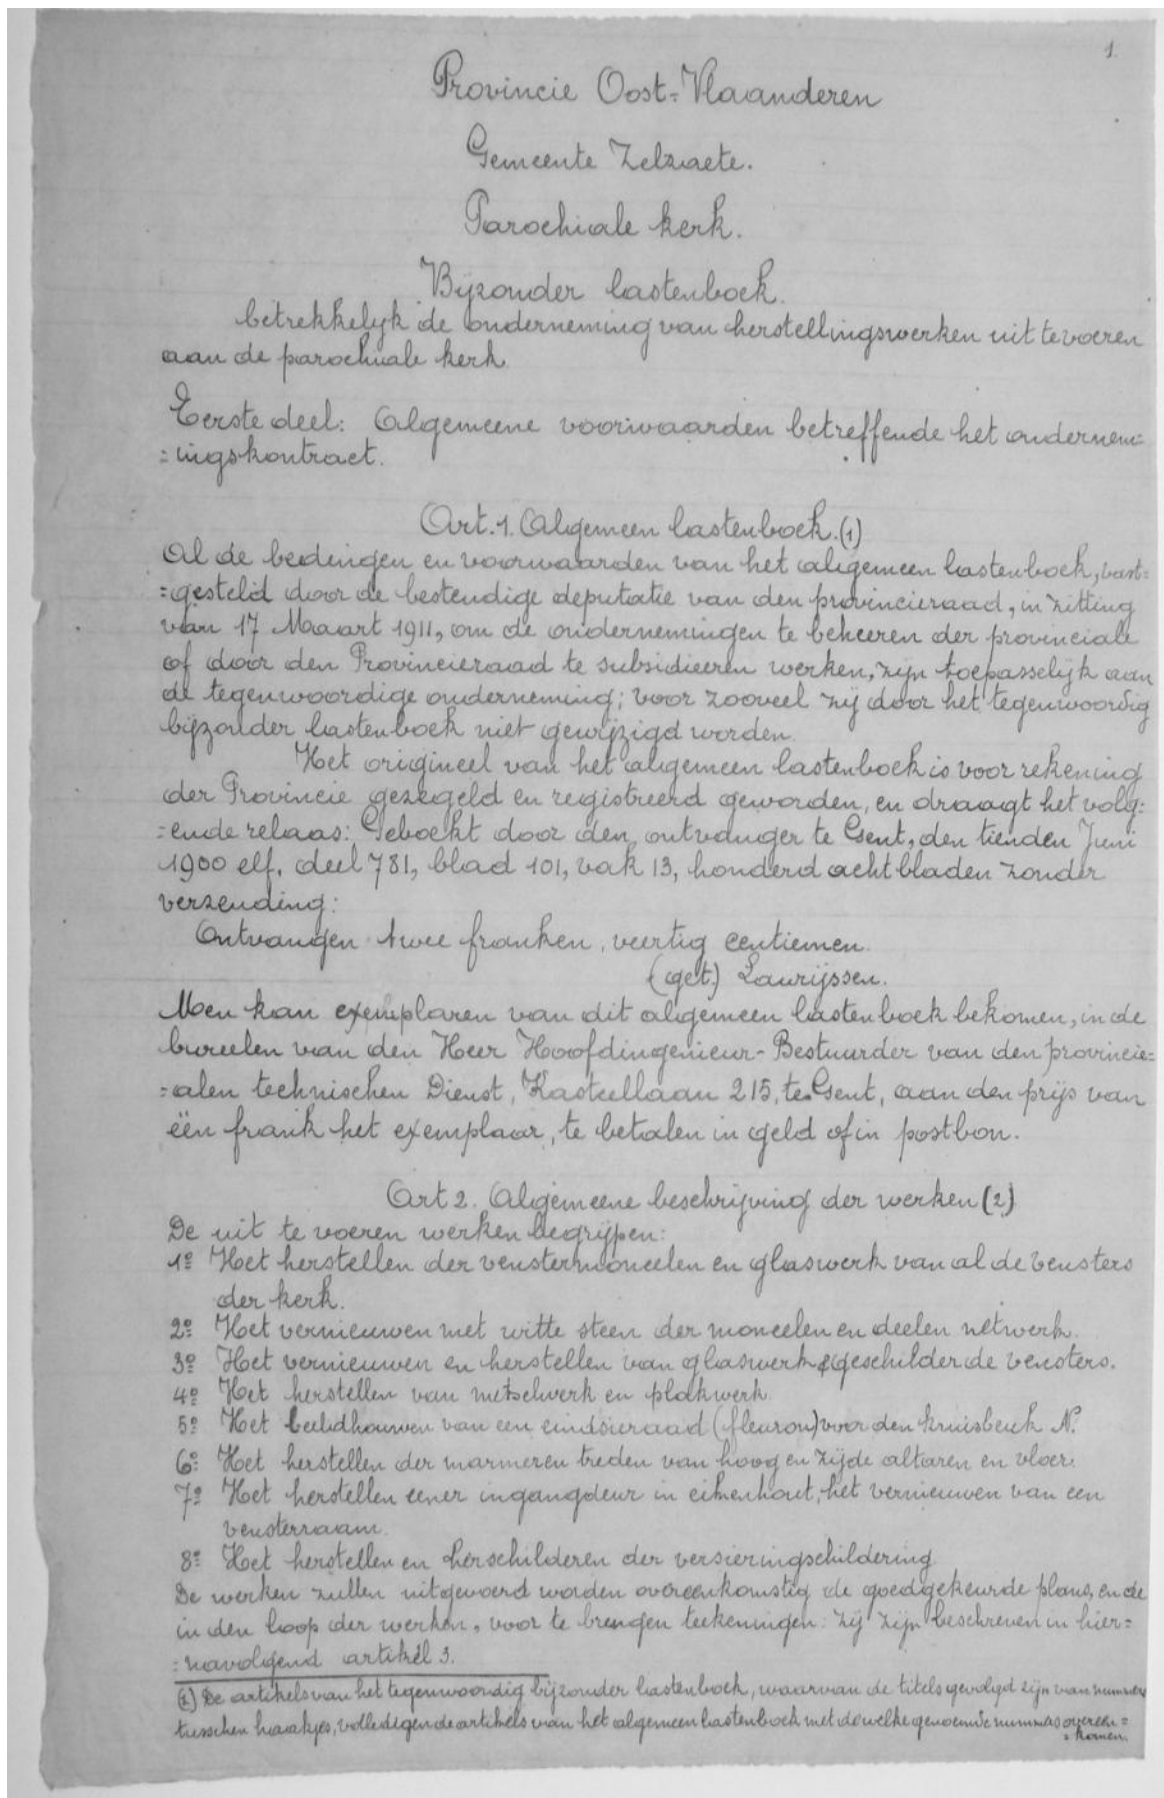 1.
Provincie Oost-Vlaanderen
Gemeente Zelzaete.
Parochiale kerk.
Bijzonder lastenboek.
betrekkelijk de onderneming van herstellingswerken uit te voeren
aan de parochiale kerk.
Eerste deel: Algemeene voorwaarden betreffende het ondernem=
=ingskontract.
Art. 1. Algemeen lastenboek. (1)
Al de bedingen en voorwaarden van het algemeen lastenboek, vast=
=gesteld door de bestendige deputatie van den provincieraad, in zitting
van 17 Maart 1911, om de ondernemingen te beheeren der provinciale
of door den Provincieraad te subsidieeren werken, zijn toepasselijk aan
de tegenwoordige onderneming; voor zooveel zij door het tegenwoordig
bijzonder lastenboek niet gewijzigd worden.
Het origineel van het algemeen lastenboek is voor rekening
der Provincie gezegeld en registreerd geworden, en draagt het volg=
=ende relaas: Geboekt door den ontvanger te Gent, den tienden Juni
1900 elf, deel 781, blad 101, vak 13, honderd acht bladen zonder
verzending:
Ontvangen twee franken, veertig centiemen.
(get.) Laurijssen.
Men kan exemplaren van dit algemeen lastenboek bekomen, in de
bureelen van den Heer Hoofdingenieur-Bestuurder van den provincie=
=alen technischen Dienst, Kasteellaan 215, te Gent, aan den prijs van
één frank het exemplaar, te betalen in geld of in postbon.
Art 2. Algemeene beschrijving der werken (2)
De uit te voeren werken begrijpen:
1º Het herstellen der venstermoneelen en glaswerk van al de vensters
der kerk.
2º Het vernieuwen met witte steen der moneelen en deelen netwerk.
3º Het vernieuwen en herstellen van glaswerk & geschilderde vensters.
4º Het herstellen van metselwerk en plakwerk.
5º Het beeldhouwen van een eindsieraad (fleuron) voor den kruisbeuk N.
6º Het herstellen der marmeren treden van hoog en zijde altaren en vloer.
7º Het herstellen eener ingangdeur in eikenhout, het vernieuwen van een
vensterraam.
8º Het herstellen en herschilderen der versieringschildering.
De werken zullen uitgevoerd worden overeenkomstig de goedgekeurde plans, en de
in den loop der werken, voor te brengen teekeningen: zij zijn beschreven in hier=
=navolgend artikel 3.
(1) De artikels van het tegenwoordig bijzonder lastenboek, waarvan de titels gevolgd zijn van nummers
tusschen haakjes, volledigen de artikels van het algemeen lastenboek met dewelke genoemde nummers overeen=
=komen.